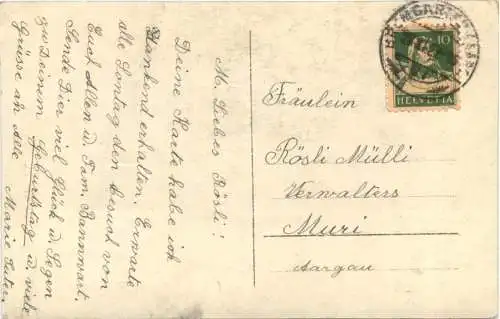 M. Liebes Rösli!
Deine Karte habe ich
dankend erhalten. Erwarte
alle Sonntag den Besuch von
Euch Allen u. Fam. Bannwart.
Sende Dir viel Glück u. Segen
zu Deinem Geburtstag u. viele
Grüsse an Alle Marie Suter.
BREMGARTEN
10
HELVETIA
Fräulein
Rösli Mülli
Verwalters
Muri
Aargau